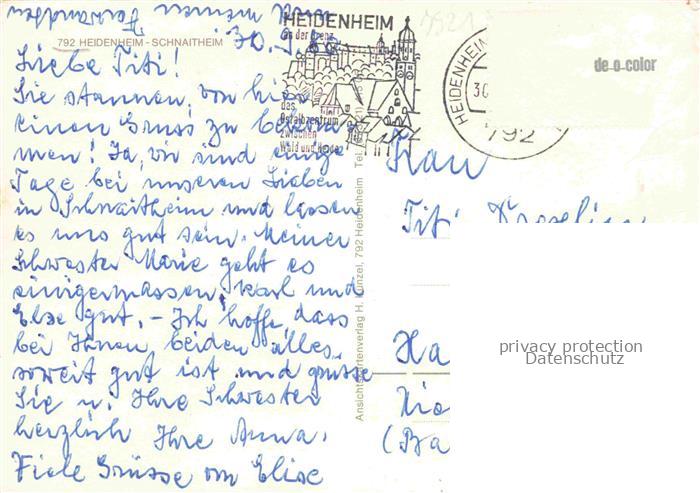 Verwandten meinen
HEIDENHEIM
an der Brenz
792 HEIDENHEIM - SCHNAITHEIM
de-o-color
HEIDENHEIM
30.
792
das
Ostalbzentrum
zwischen
Wald und Heide
Liebe Titi!
Sie staunen, von hier
einen Gruss zu bekom
men! Ja, wir sind einige
Tage bei unseren Lieben
in Schnaitheim und lassen
es uns gut sein. Meiner
Schwester Marie geht es
einigermassen, Karl und
Else gut, – Ich hoffe, dass
bei Ihnen beiden alles
soweit gut ist und grüsse
Sie u. Ihre Schwester
herzlich Ihre Anna.
Viele Grüsse von Elise
Ansichtskartenverlag H. Künzel, 792 Heidenheim Tel.
Frau
Titi
Ha
(Ba
privacy protection
Datenschutz